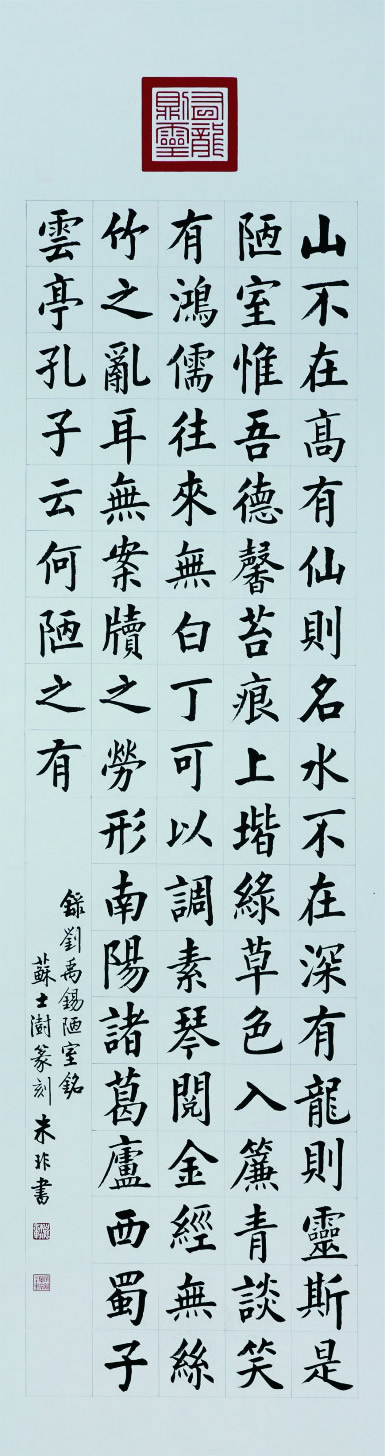 有龍
則靈
山不在髙有仙則名水不在深有龍則靈斯是
陋室惟吾德馨苔痕上堦綠草色入簾青談笑
有鴻儒往來無白丁可以調素琴閱金經無絲
竹之亂耳無案牘之勞形南陽諸葛廬西蜀子
雲亭孔子云何陋之有
錄劉禹錫陋室銘
蘇士澍篆刻 書